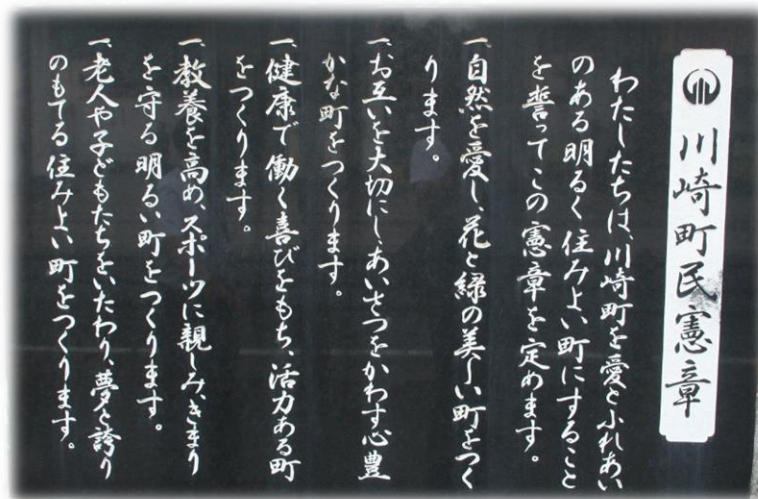 川崎町民憲章
わたしたちは、川崎町を愛しふれあい
のある明るく住みよい町にすること
を誓ってこの憲章を定めます。
一、自然を愛し、花と緑の美しい町をつく
ります。
一、お互いを大切にし、あいさつをかわす心豊
かな町をつくります。
一、健康で働く喜びをもち、活力ある町
をつくります。
一、教養を高め、スポーツに親しみ、きまり
を守る明るい町をつくります。
一、老人や子どもたちをいたわり、夢と誇り
のもてる住みよい町をつくります。